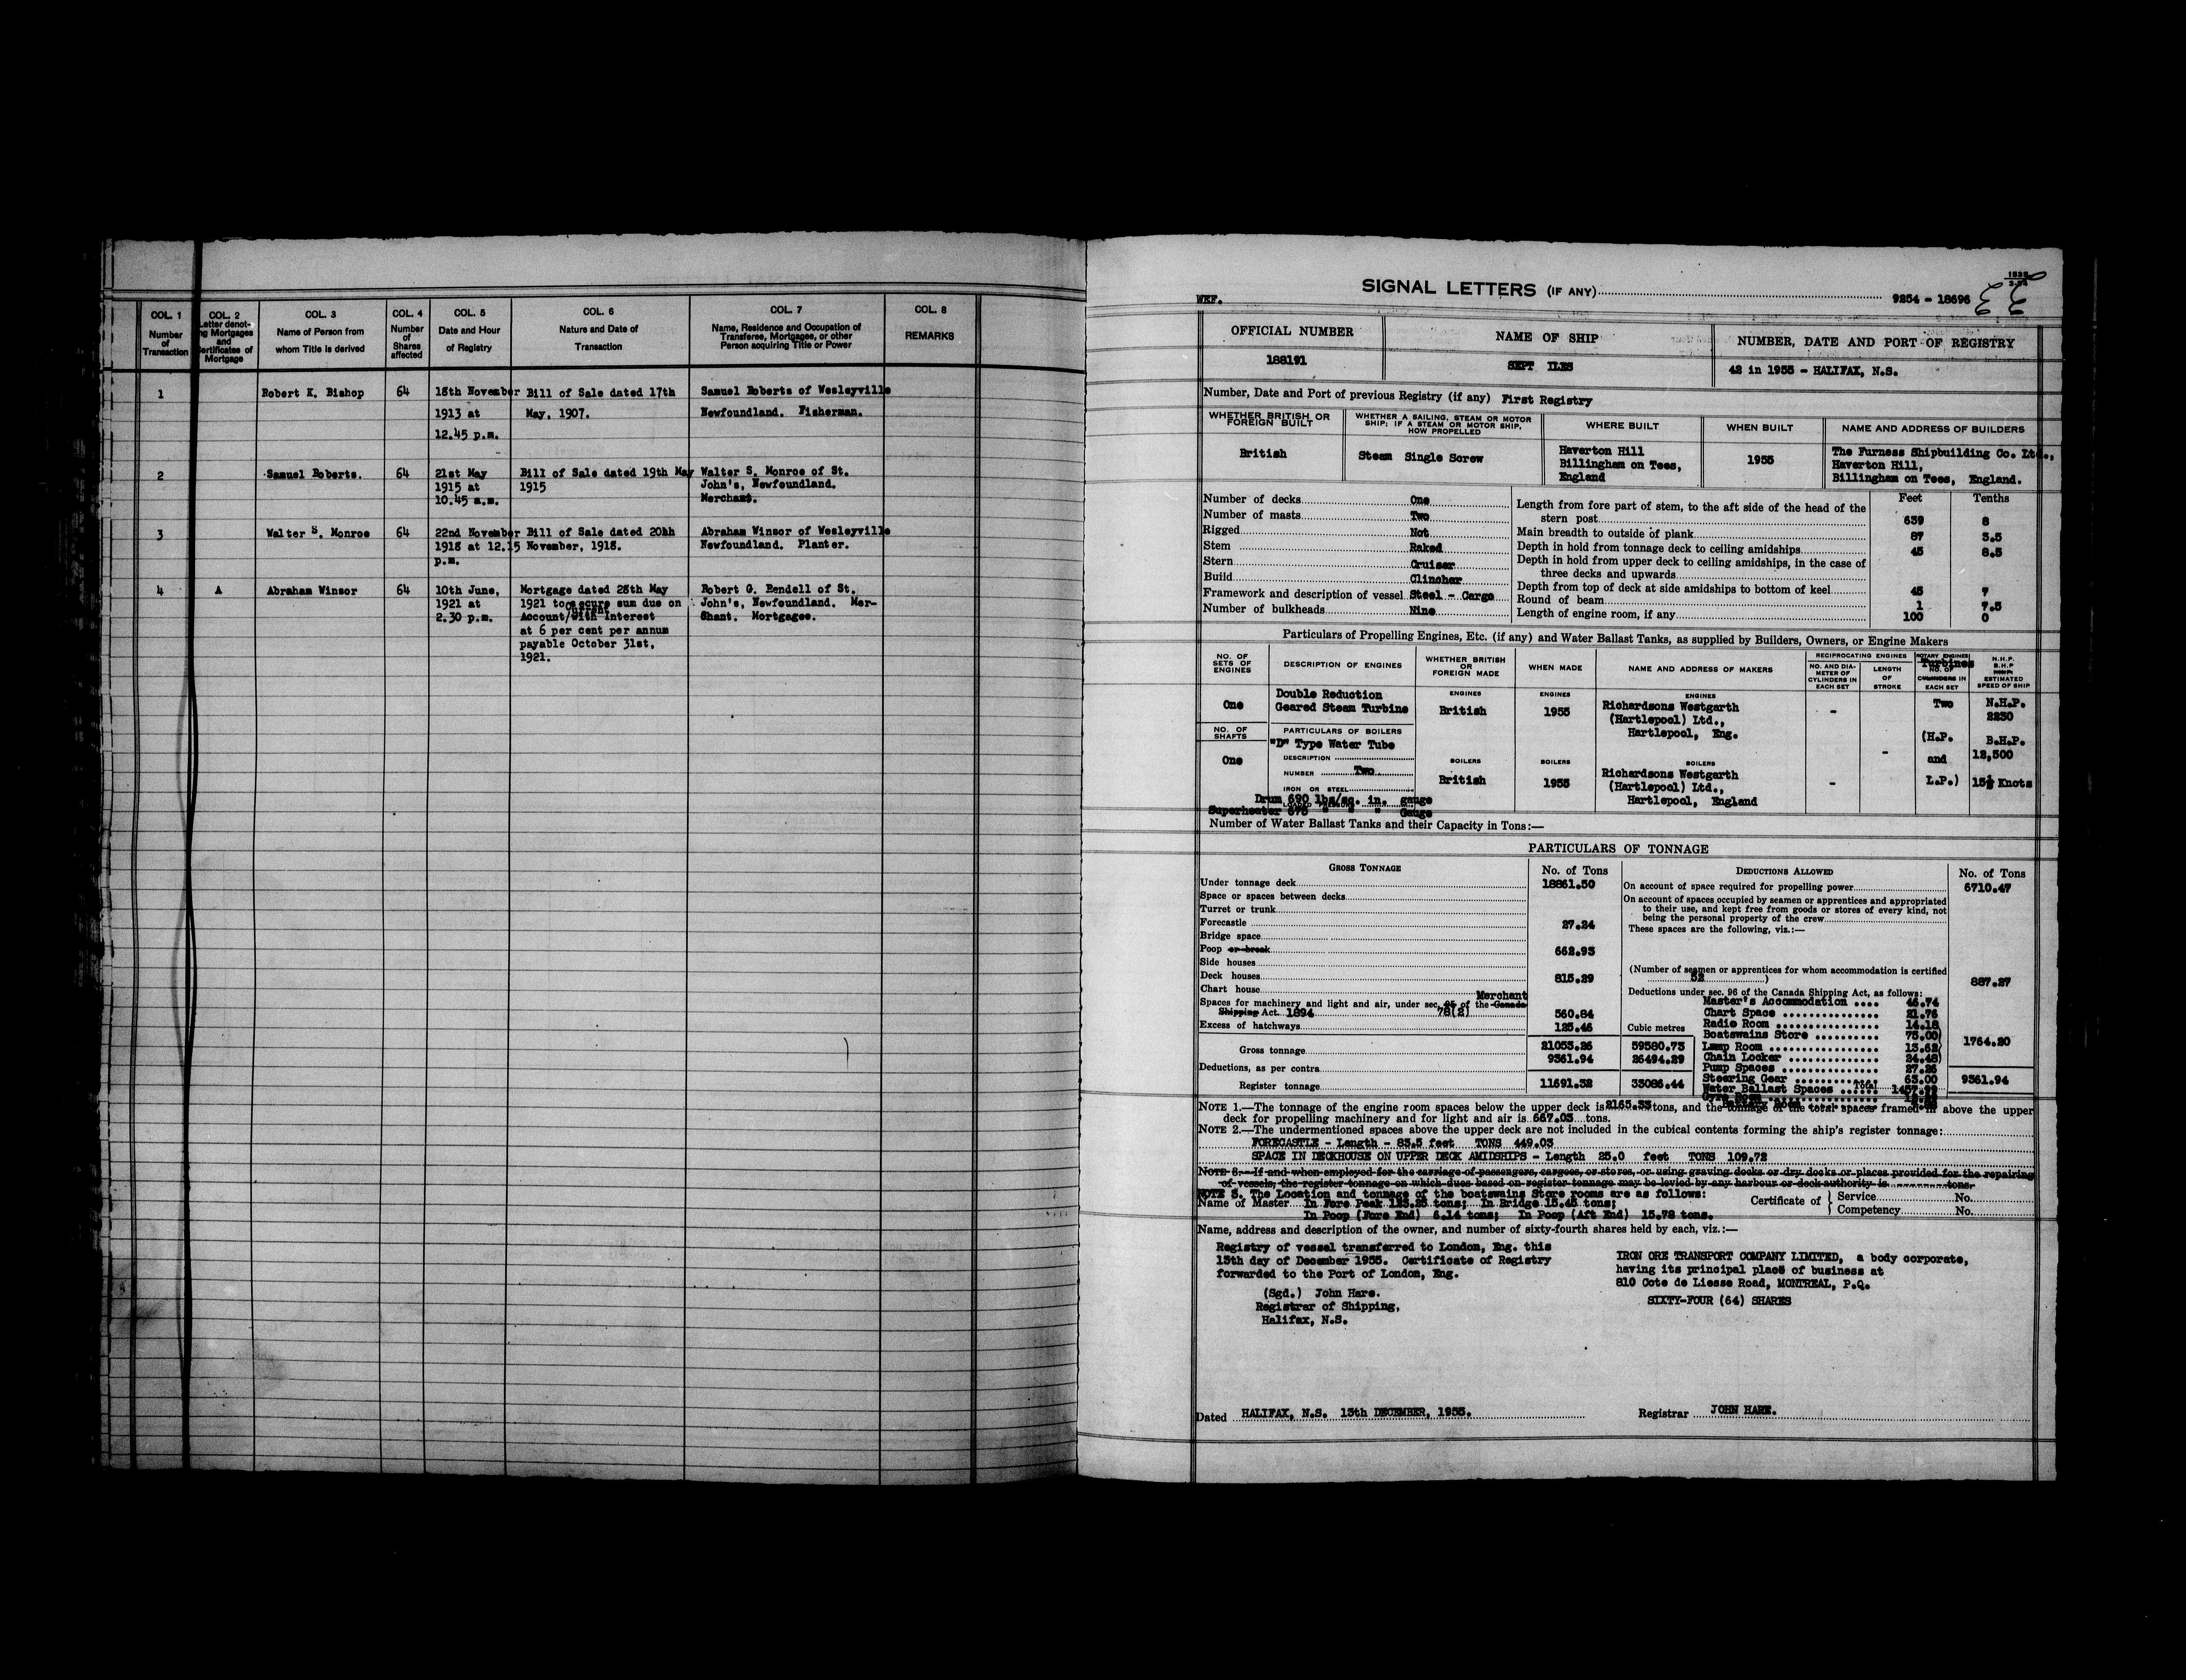 COL. 1
Number
of
Transaction
COL. 2
Letter denot-
ing Mortgages
and
Certificates of
Mortgage
COL. 3
Name of Person from
whom Title is derived
COL. 4
Number
of
Shares
affected
COL. 5
Date and Hour
of Registry
COL. 6
Nature and Date of
Transaction
COL. 7
Name, Residence and Occupation of
Transferee, Mortgagee, or other
Person acquiring Title or Power
COL. 8
REMARKS
1 Robert K. Bishop 64 18th November Bill of Sale dated 17th Samuel Roberts of Wesleyville
1913 at May, 1907. Newfoundland. Fisherman.
12.45 p.m.
2 Samuel Roberts. 64 21st May Bill of Sale dated 19th May Walter S. Monroe of St.
1915 at 1915 John's, Newfoundland.
10.45 a.m. Merchant.
3 Walter S. Monroe 64 22nd November Bill of Sale dated 20th Abraham Winsor of Wesleyville
1918 at 12.15 November, 1918. Newfoundland. Planter.
p.m.
4 A Abraham Winsor 64 10th June, Mortgage dated 28th May Robert G. Rendell of St.
1921 at 1921 to secure sum due on John's, Newfoundland. Mer-
2.30 p.m. Account/with Interest Chant. Mortgagee.
Current
at 6 per cent per annum
payable October 31st,
1921.
SIGNAL LETTERS (IF ANY)
9254 - 18696
WKF.
OFFICIAL NUMBER
188191
NAME OF SHIP
SEPT ILES
NUMBER, DATE AND PORT OF REGISTRY
42 in 1955 - HALIFAX, N.S.
Number, Date and Port of previous Registry (if any) First Registry
WHETHER BRITISH OR
FOREIGN BUILT
British
WHETHER A SAILING, STEAM OR MOTOR
SHIP; IF A STEAM OR MOTOR SHIP,
HOW PROPELLED
Steam Single Screw
WHERE BUILT
Haverton Hill
Billingham on Tees,
England
WHEN BUILT
1955
NAME AND ADDRESS OF BUILDERS
The Furness Shipbuilding Co. Ltd.,
Haverton Hill,
Billingham on Tees, England.
Number of decks One
Number of masts Two
Rigged Not
Stem Raked
Stern Cruiser
Build Clincher
Framework and description of vessel Steel - Cargo
Number of bulkheads Nine
Feet Tenths
Length from fore part of stem, to the aft side of the head of the
stern post 639 8
Main breadth to outside of plank 87 3.5
Depth in hold from tonnage deck to ceiling amidships 45 8.5
Depth in hold from upper deck to ceiling amidships, in the case of
three decks and upwards
Depth from top of deck at side amidships to bottom of keel 45 7
Round of beam 1 7.5
Length of engine room, if any 100 0
Particulars of Propelling Engines, Etc. (if any) and Water Ballast Tanks, as supplied by Builders, Owners, or Engine Makers
NO. OF
SETS OF
ENGINES
One
NO. OF
SHAFTS
One
DESCRIPTION OF ENGINES
Double Reduction
Geared Steam Turbine
PARTICULARS OF BOILERS
"D" Type Water Tube
DESCRIPTION
NUMBER Two
IRON OR STEEL
Drum 690 lbs/sq. in. gauge
Superheater 575 " " " Gauge
WHETHER BRITISH
OR
FOREIGN MADE
ENGINES
British
BOILERS
British
WHEN MADE
ENGINES
1955
BOILERS
1955
NAME AND ADDRESS OF MAKERS
ENGINES
Richardsons Westgarth
(Hartlepool) Ltd.,
Hartlepool, Eng.
BOILERS
Richardsons Westgarth
(Hartlepool) Ltd.,
Hartlepool, England
RECIPROCATING ENGINES
NO. AND DIA-
METER OF
CYLINDERS IN
EACH SET
-
-
LENGTH
OF
STROKE
-
ROTARY ENGINES
Turbines
NO. OF
CYLINDERS IN
EACH SET
Two
(H.P.
and
L.P.)
N.H.P.
B.H.P.
ESTIMATED
SPEED OF SHIP
N.H.P.
2230
B.H.P.
12,500
15½ Knots
Number of Water Ballast Tanks and their Capacity in Tons:—
PARTICULARS OF TONNAGE
GROSS TONNAGE No. of Tons
Under tonnage deck 18861.50
Space or spaces between decks
Turret or trunk
Forecastle 27.24
Bridge space
Poop or break 662.93
Side houses
Deck houses 815.29
Chart house
Merchant
Spaces for machinery and light and air, under sec. 78(2) of the Canada
Shipping Act. 1894 560.84
Excess of hatchways 125.46 Cubic metres
Gross tonnage 21053.26 59580.73
Deductions, as per contra 9361.94 26494.29
Register tonnage 11691.32 33086.44
DEDUCTIONS ALLOWED No. of Tons
On account of space required for propelling power 6710.47
On account of spaces occupied by seamen or apprentices and appropriated
to their use, and kept free from goods or stores of every kind, not
being the personal property of the crew
These spaces are the following, viz.:—
(Number of seamen or apprentices for whom accommodation is certified
52 ) 887.27
Deductions under sec. 96 of the Canada Shipping Act, as follows:
Master's Accommodation 46.74
Chart Space 21.76
Radio Room 14.18
Boatswains Store 75.00
Lamp Room 13.62 1764.20
Chain Locker 24.48
Pump Spaces 27.26
Steering Gear 63.00
Total 9361.94
Water Ballast Spaces
Gyro Room
NOTE 1.—The tonnage of the engine room spaces below the upper deck is 2165.33 tons, and the tonnage of the total spaces framed in above the upper
deck for propelling machinery and for light and air is 667.03 tons.
NOTE 2.—The undermentioned spaces above the upper deck are not included in the cubical contents forming the ship's register tonnage:
FORECASTLE - Length - 83.5 feet TONS 449.03
SPACE IN DECKHOUSE ON UPPER DECK AMIDSHIPS - Length 25.0 feet TONS 109.72
NOTE 3.—If and when employed for the carriage of passengers, cargoes, or stores, or using graving docks or dry docks or places provided for the repairing
of vessels, the register tonnage on which dues based on register tonnage may be levied by any harbour or dock authority is tons.
NOTE 3. The Location and tonnage of the boatswains Store rooms are as follows:
Name of Master In Fore Peak 123.25 tons; In Bridge 15.45 tons;
In Poop (Fore End) 6.14 tons; In Poop (Aft End) 15.78 tons.
Certificate of Service No.
Competency No.
Name, address and description of the owner, and number of sixty-fourth shares held by each, viz.:—
Registry of vessel transferred to London, Eng. this
13th day of December 1955. Certificate of Registry
forwarded to the Port of London, Eng.
(Sgd.) John Hare.
Registrar of Shipping,
Halifax, N.S.
IRON ORE TRANSPORT COMPANY LIMITED, a body corporate,
having its principal place of business at
810 Cote de Liesse Road, MONTREAL, P.Q.
SIXTY-FOUR (64) SHARES
Dated HALIFAX, N.S. 13th DECEMBER, 1955.
Registrar JOHN HARE.